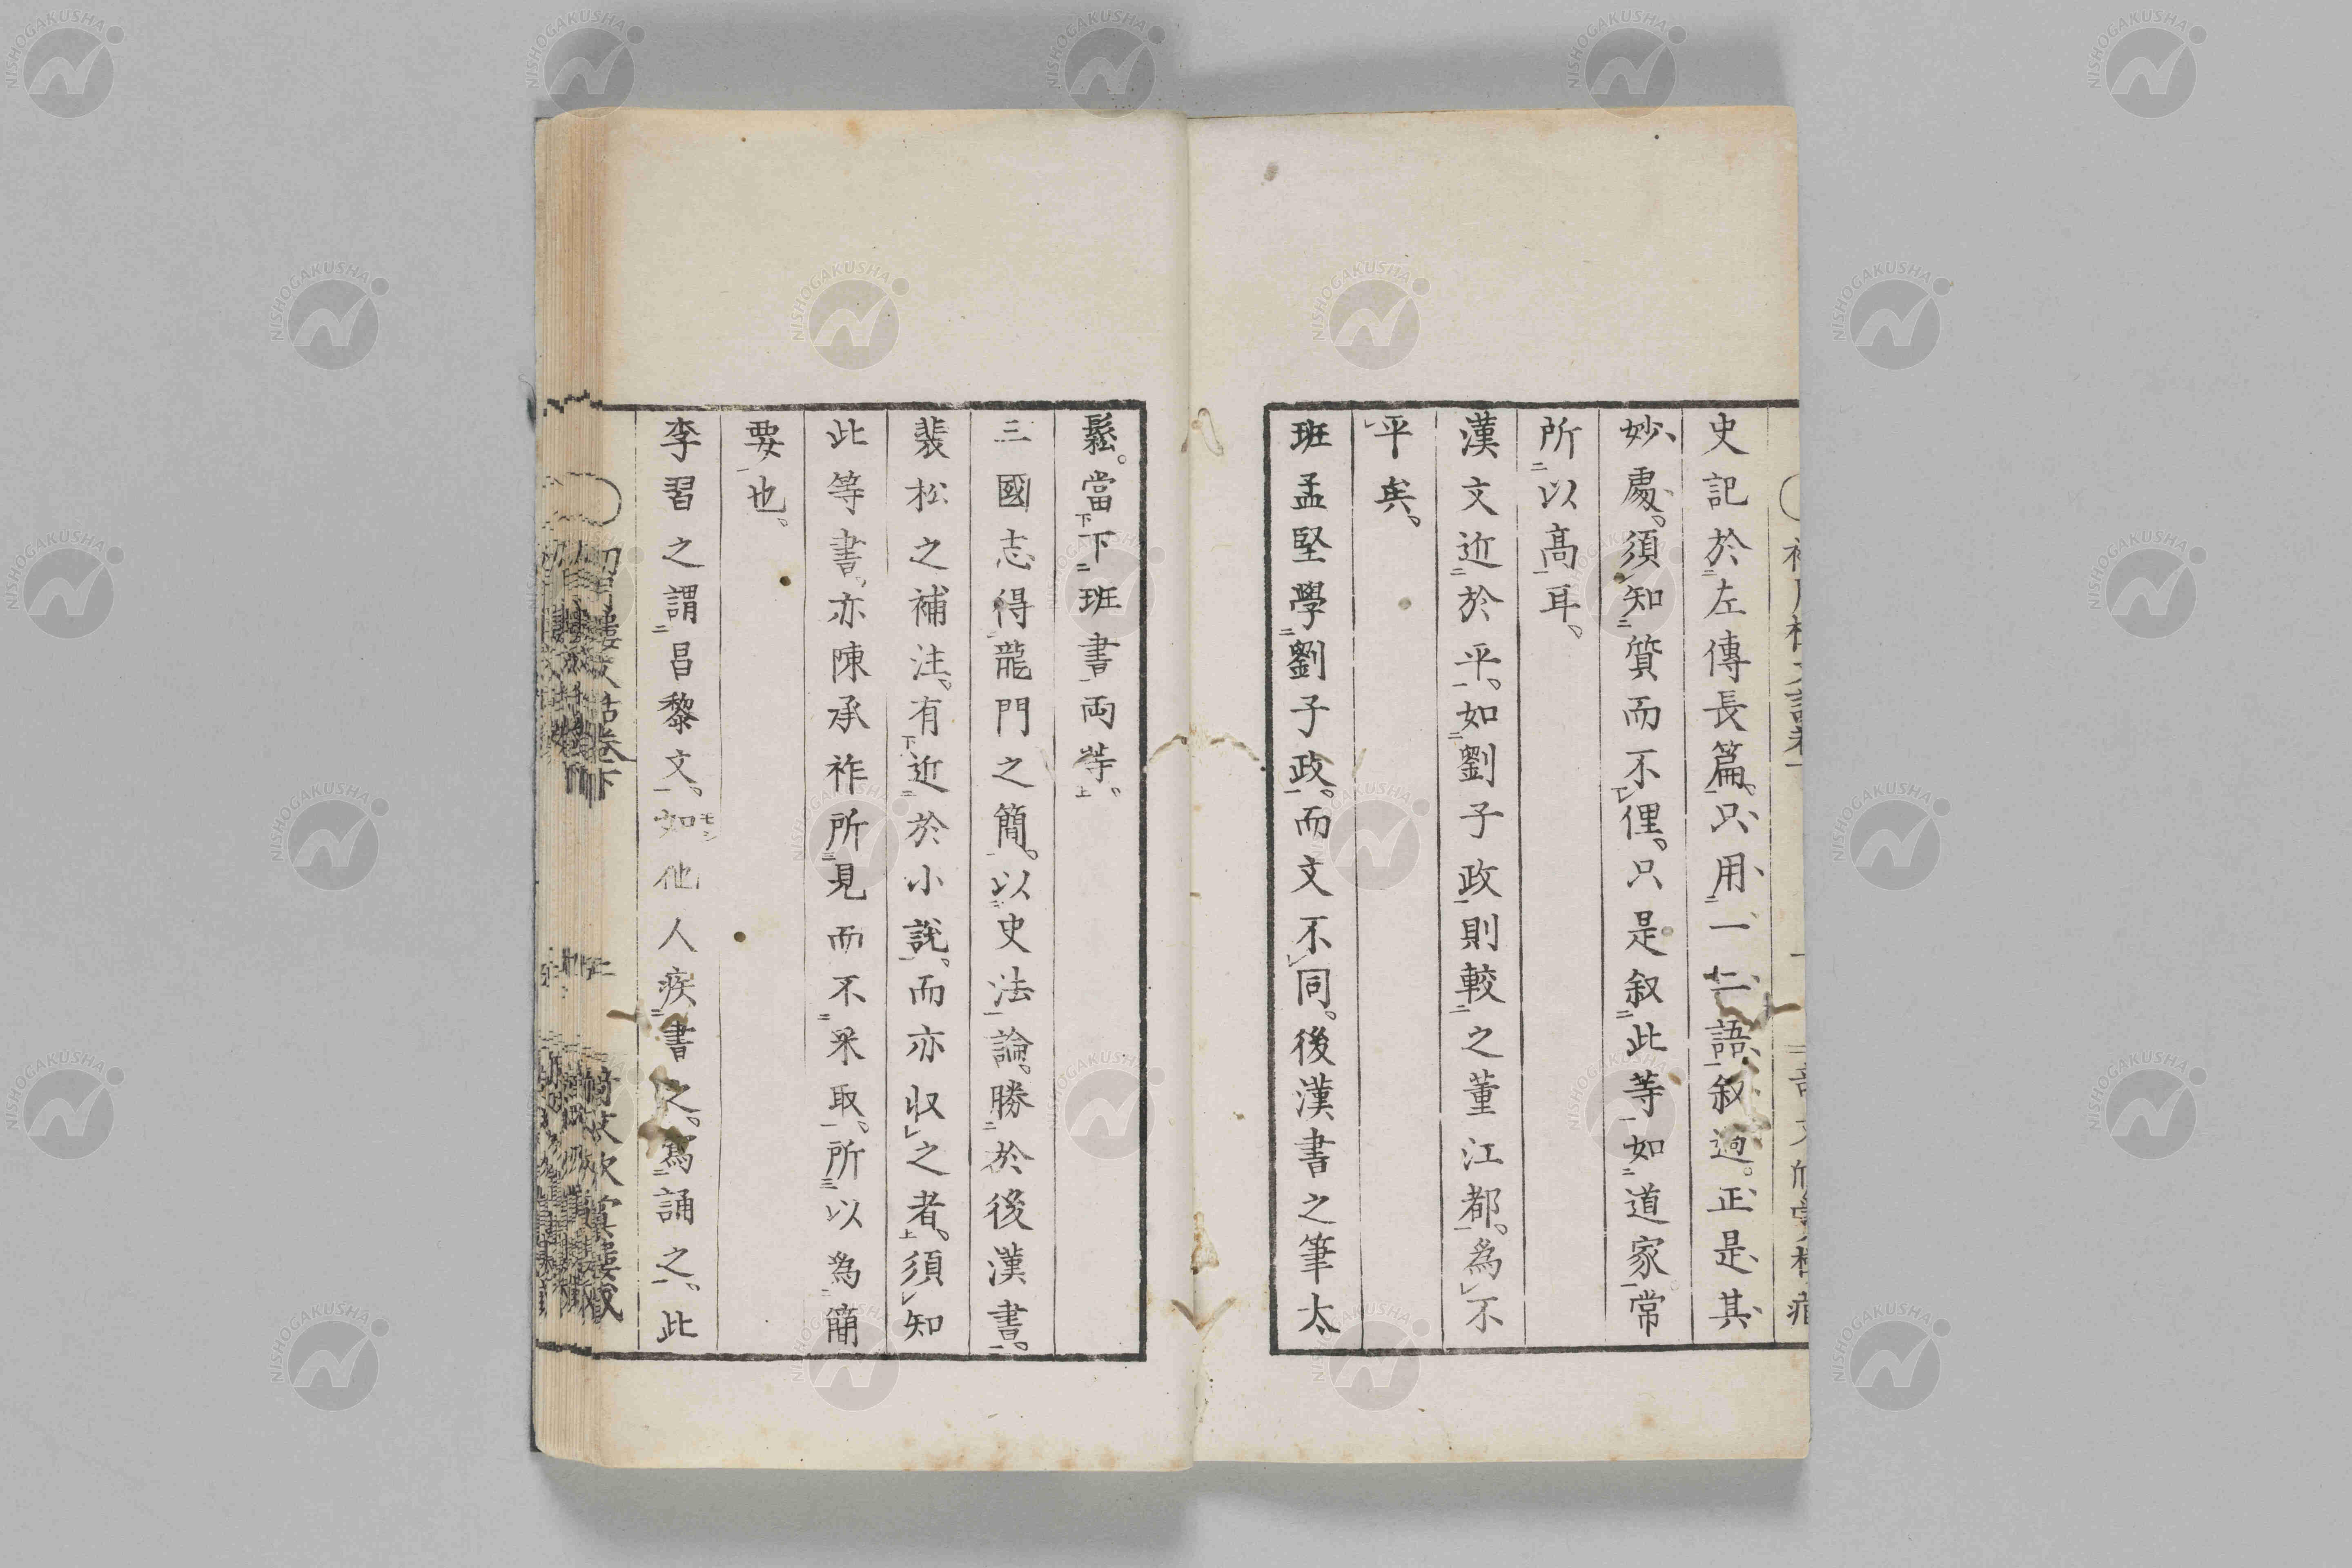 史記於左傳長篇。只用一二語叙過。正是其
妙處。須知質而不俚。只是叙此等如道家常
所以高耳。
漢文近於平。如劉子政則較之董江都。為不
平矣。
班孟堅學劉子政。而文不同。後漢書之筆太
鬆。當下班書両等。
三國志得龍門之簡。以史法論。勝於後漢書。
裴松之補注。有近於小說。而亦収之者。須知
此等書。亦陳承祚所見而不采取。所以為簡
要也。
李習之謂昌黎文。如他人疾書之。寫誦之。此
NISHOGAKUSHA